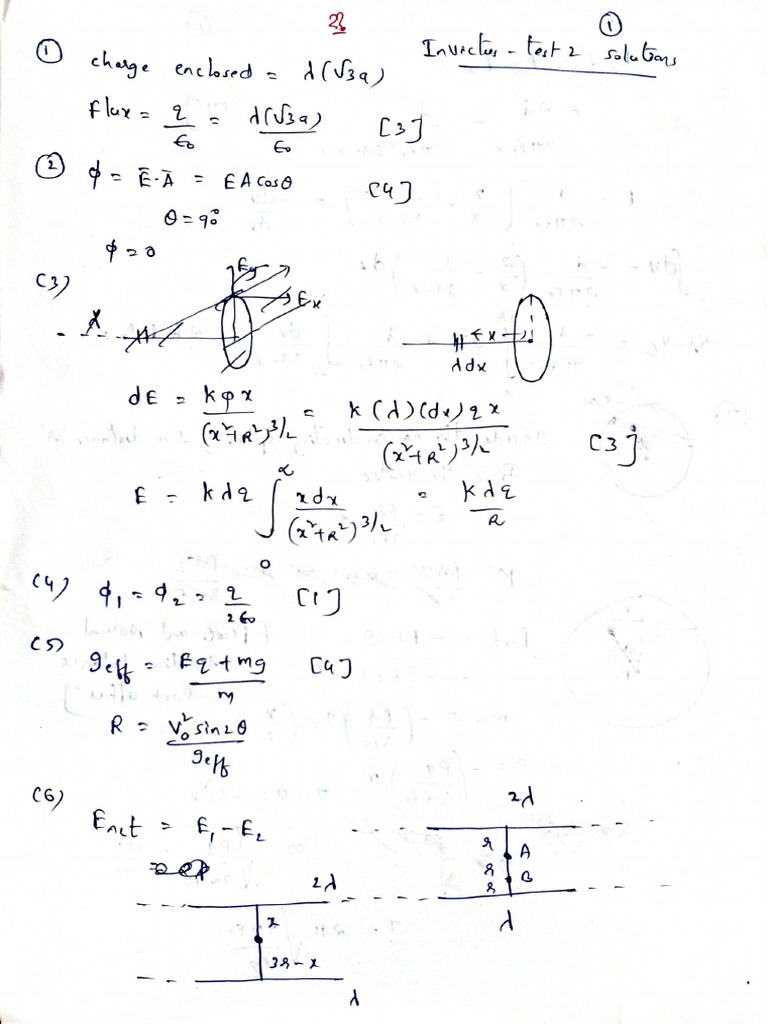 28
①
Invictus - test 2 solutions
① charge enclosed = λ(√3a)
flux = q/ε₀ = λ(√3a)/ε₀ [3]
② φ = E̅·A̅ = EA cosθ [4]
θ = 90°
φ = 0
(3)
Ey
Ex
λ
x
λdx
dE = kφx/(x²+R²)^3/2 = k(λ)(dx)qx/(x²+R²)^3/2 [3]
E = kλq ∫₀^α xdx/(x²+R²)^3/2 = kλq/R
(4) φ₁ = φ₂ = q/2ε₀ [1]
(5) geff = Eq+mg/m [4]
R = V₀² sin2θ/geff
(6) Enet = E₁ - E₂
2λ
r
A
r
B
r
λ
2λ
x
3r-x
λ